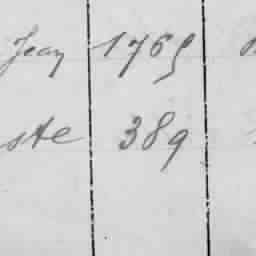 Jean 1769
ste 389